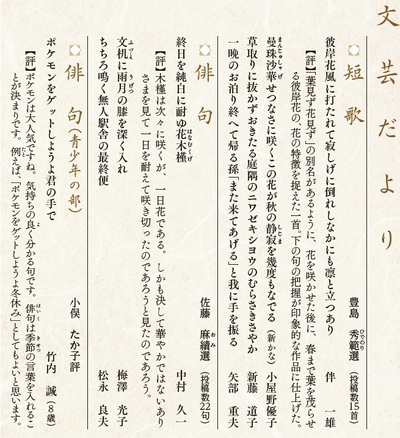 文芸だより
短歌
豊島 秀範選(投稿数15首)
ひでのり
彼岸花風に打たれて寂しげに倒れしなかにも凛と立つあり 伴 一雄
【評】「葉見ず花見ず」の別名があるように、花を咲かせた後に、春まで葉を茂らせ
る彼岸花の、花の特徴を捉えた一首。下の句の把握が印象的な作品に仕上げた。
まんじゅしゃげ
しじま
曼珠沙華せつなさに咲くこの花が秋の静寂を幾度もなでる(新かな) 小屋野優子
草取りに抜かずおきたる庭隅のニワゼキショウのむらさきさやか 新藤 道子
一晩のお泊り終へて帰る孫「また来てあげる」と我に手を振る 矢部 重夫
俳句
佐藤 麻績選(投稿数22句)
おみ
はなむくげ
終日を純白に耐ゆ花木槿 中村 久一
【評】木槿は次々に咲くが、一日花である。しかも決して華やかではないあり
さまを見て一日を耐えて咲き切ったのであろうと見たのであろう。
ふづくえ
うげつ
文机に雨月の膝を深く入れ 梅澤 光子
ちちろ鳴く無人駅舎の最終便 松永 良夫
俳句(青少年の部)
小俣 たか子評
ポケモンをゲットしようよ君の手で 竹内 誠(8歳)
【評】ポケモンは大人気ですね。気持ちの良く分かる句です。俳句は季節の言葉を入れるこ
はいく
きせつ
とが決まりです。例えば、「ポケモンをゲットしようよ冬休み」としてもよいと思います。